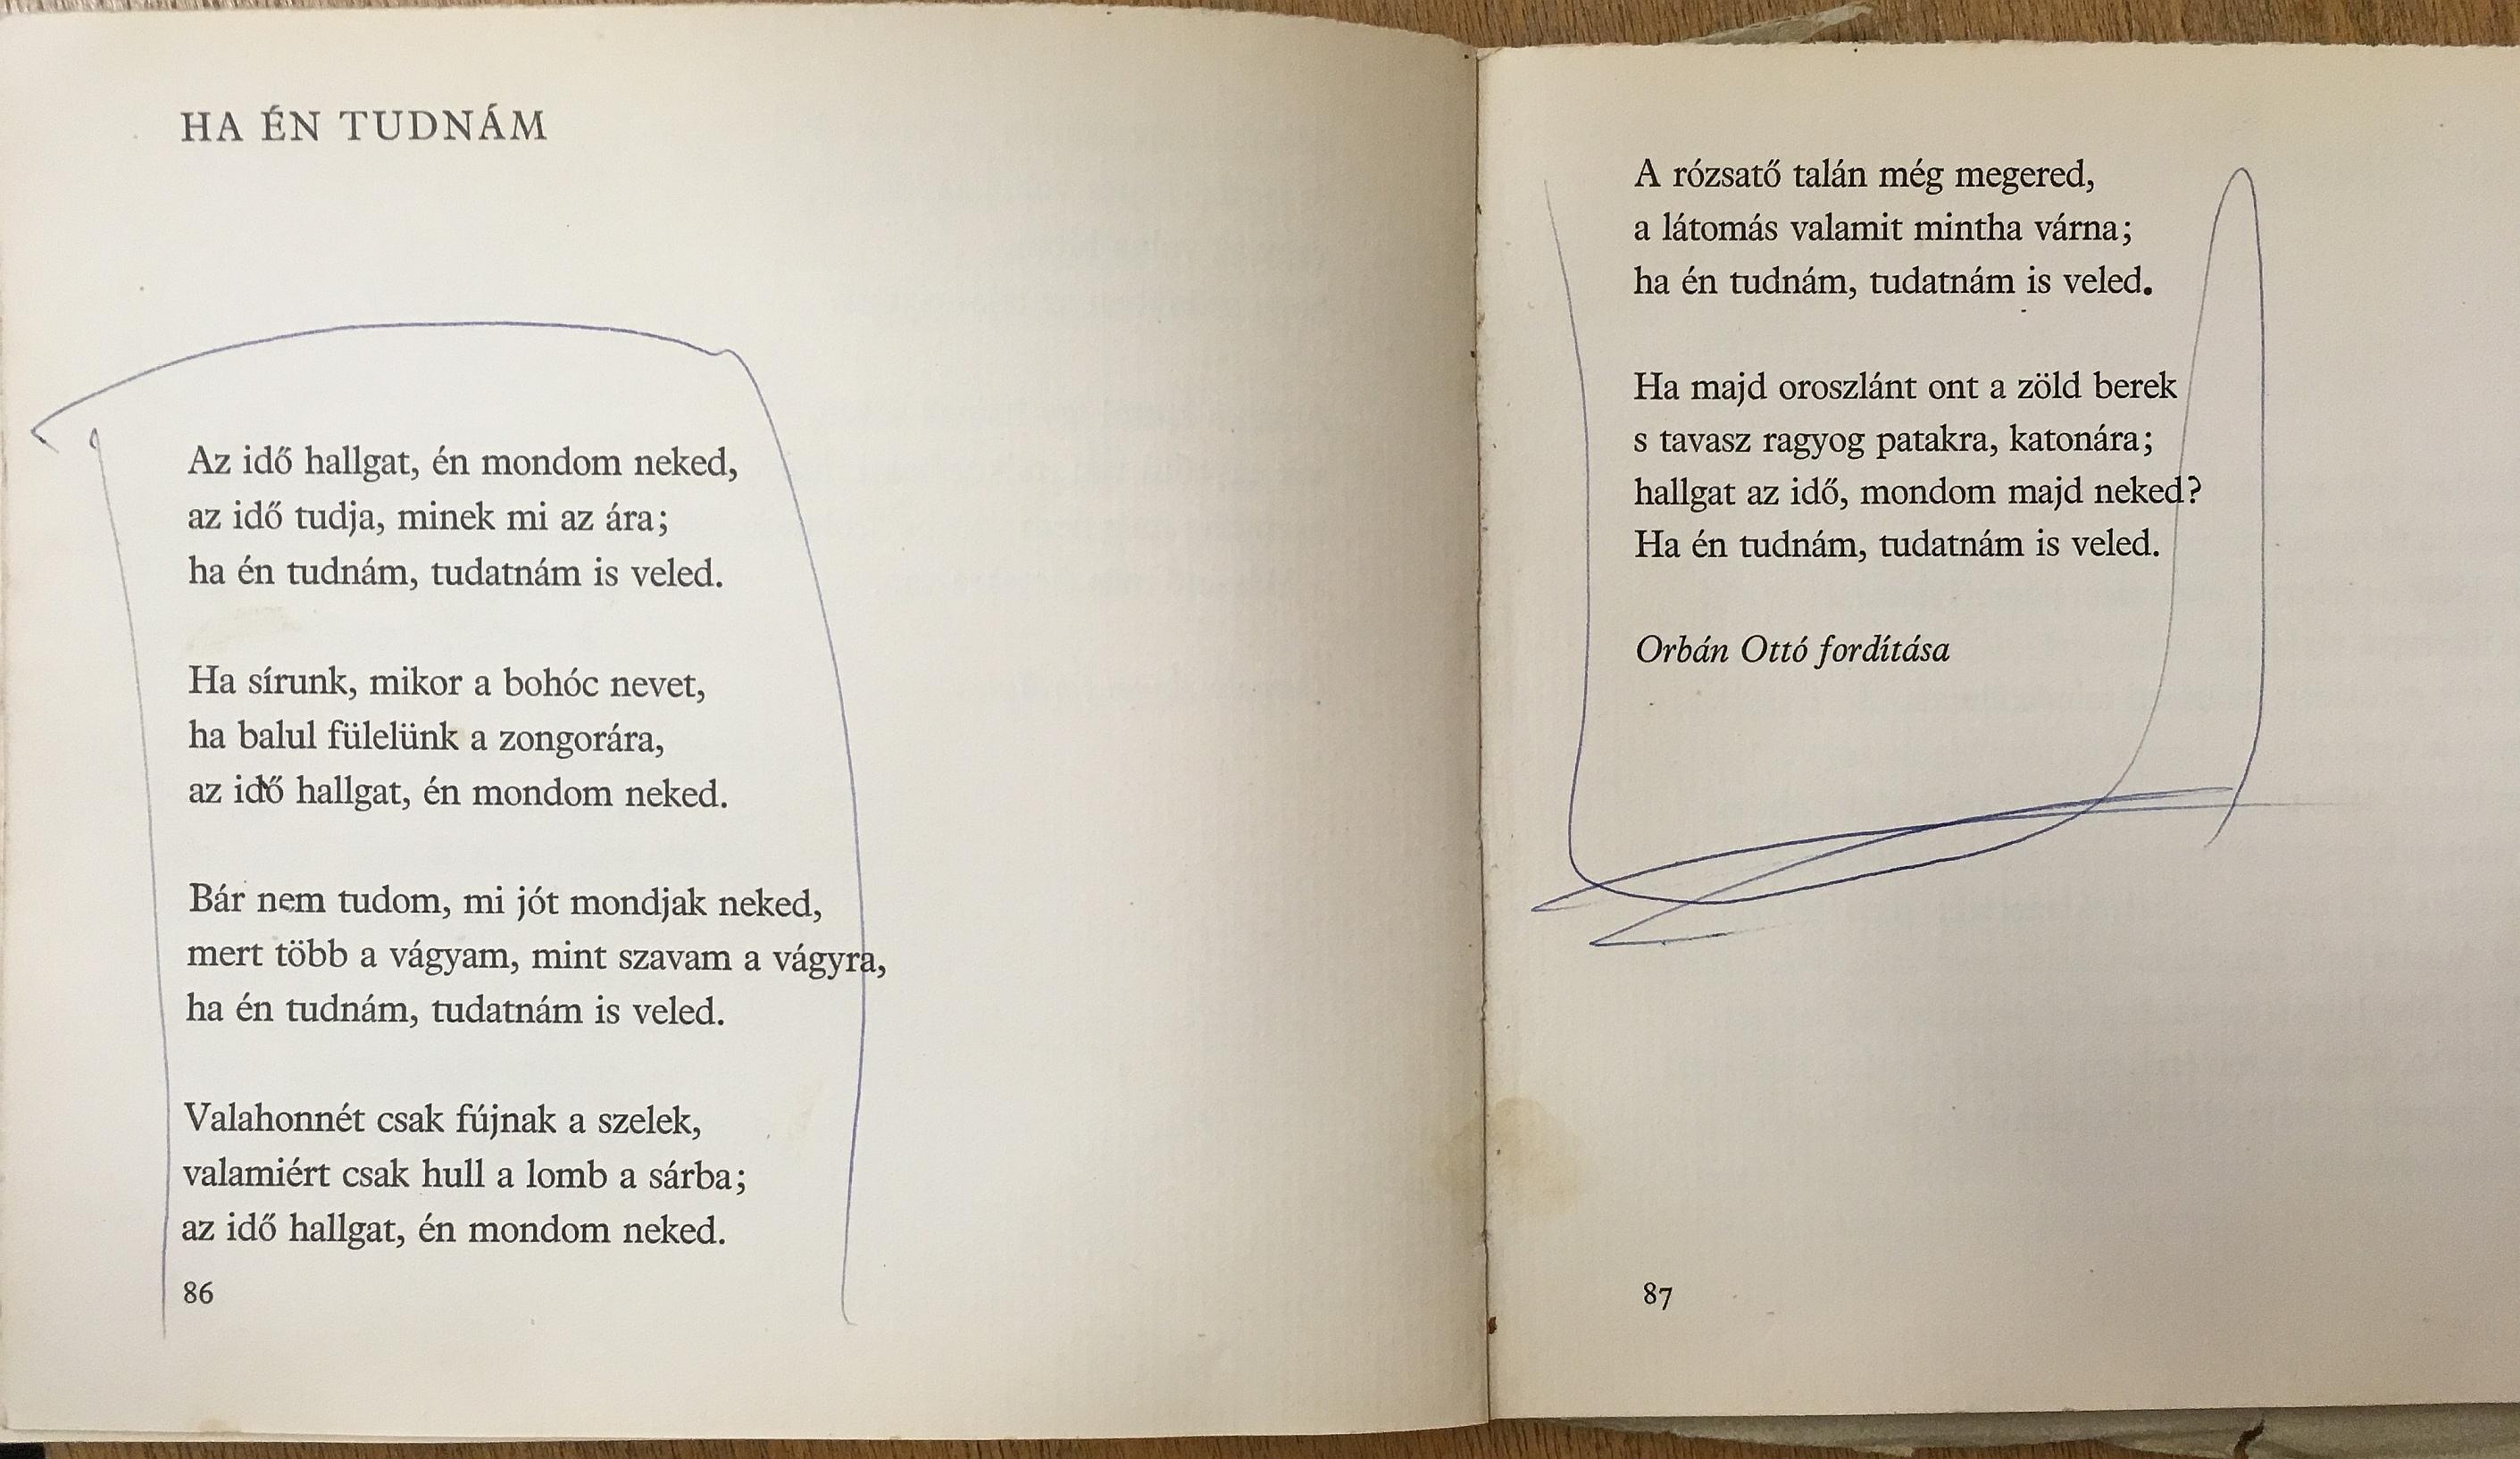 HA ÉN TUDNÁM
Az idő hallgat, én mondom neked,
az idő tudja, minek mi az ára;
ha én tudnám, tudatnám is veled.
Ha sírunk, mikor a bohóc nevet,
ha balul fülelünk a zongorára,
az idő hallgat, én mondom neked.
Bár nem tudom, mi jót mondjak neked,
mert több a vágyam, mint szavam a vágyra,
ha én tudnám, tudatnám is veled.
Valahonnét csak fújnak a szelek,
valamiért csak hull a lomb a sárba;
az idő hallgat, én mondom neked.
86
A rózsatő talán még megered,
a látomás valamit mintha várna;
ha én tudnám, tudatnám is veled.
Ha majd oroszlánt ont a zöld berek
s tavasz ragyog patakra, katonára;
hallgat az idő, mondom majd neked?
Ha én tudnám, tudatnám is veled.
Orbán Ottó fordítása
87